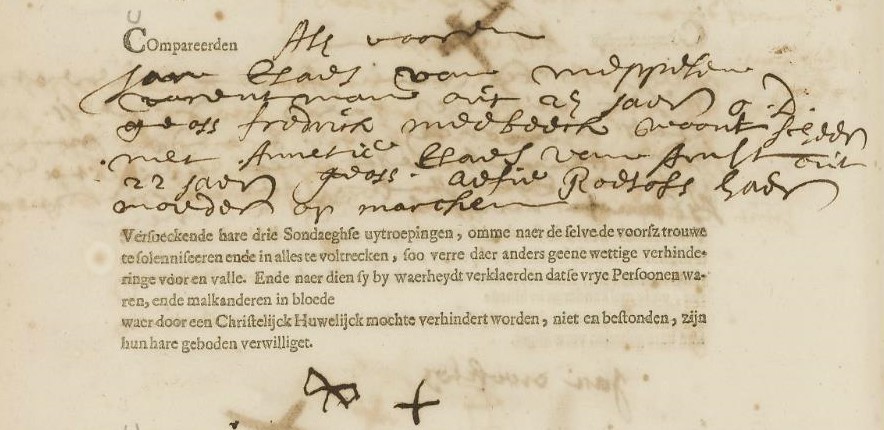 Compareerden Als vooren
Jan Claes van meppelen
varentman out 25 jaer
geass fredrick woont
met Annetie Claes van out
22 jaer geass. Aefie Roelofs haer
moeder op marcken
Versoeckende hare drie Sondaeghse uytroepingen, omme naer de selve de voorsz trouwe
te solemniseeren ende in alles te voltrecken, soo verre daer anders geene wettige verhinde-
ringe vooren valle. Ende naer dien sy by waerheydt verklaerden datse vrye Persoonen wa-
ren, ende malkanderen in bloede
waer door een Christelijck Huwelijck mochte verhindert worden, niet en bestonden, zijn
hun hare geboden verwilliget.